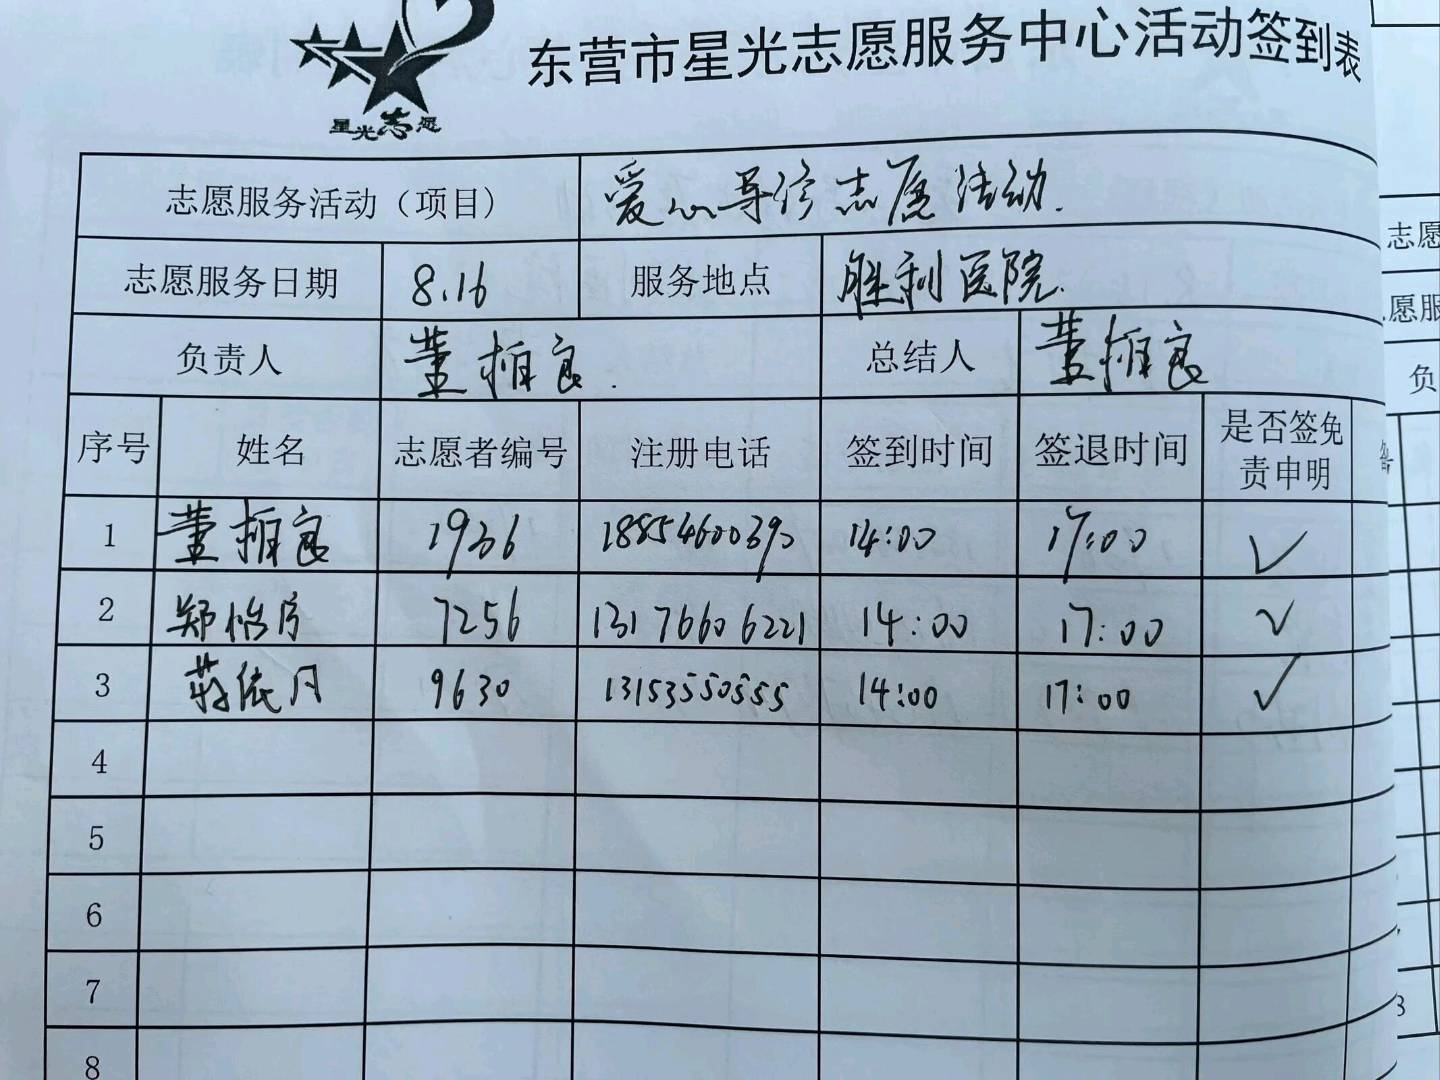 星光志愿
东营市星光志愿服务中心活动签到表
志愿服务活动（项目） 爱心导诊志愿活动.
志愿服务日期 8.16 服务地点 胜利医院.
负责人 董良. 总结人 董良
序号 姓名 志愿者编号 注册电话 签到时间 签退时间 是否签免责申明
1 董良 1936 18854600390 14:00 17:00 ✓
2 郑怡 7256 13176606221 14:00 17:00 ✓
3 蒋依月 9630 13153550555 14:00 17:00 ✓
4
5
6
7
8
志愿
愿服
负
3